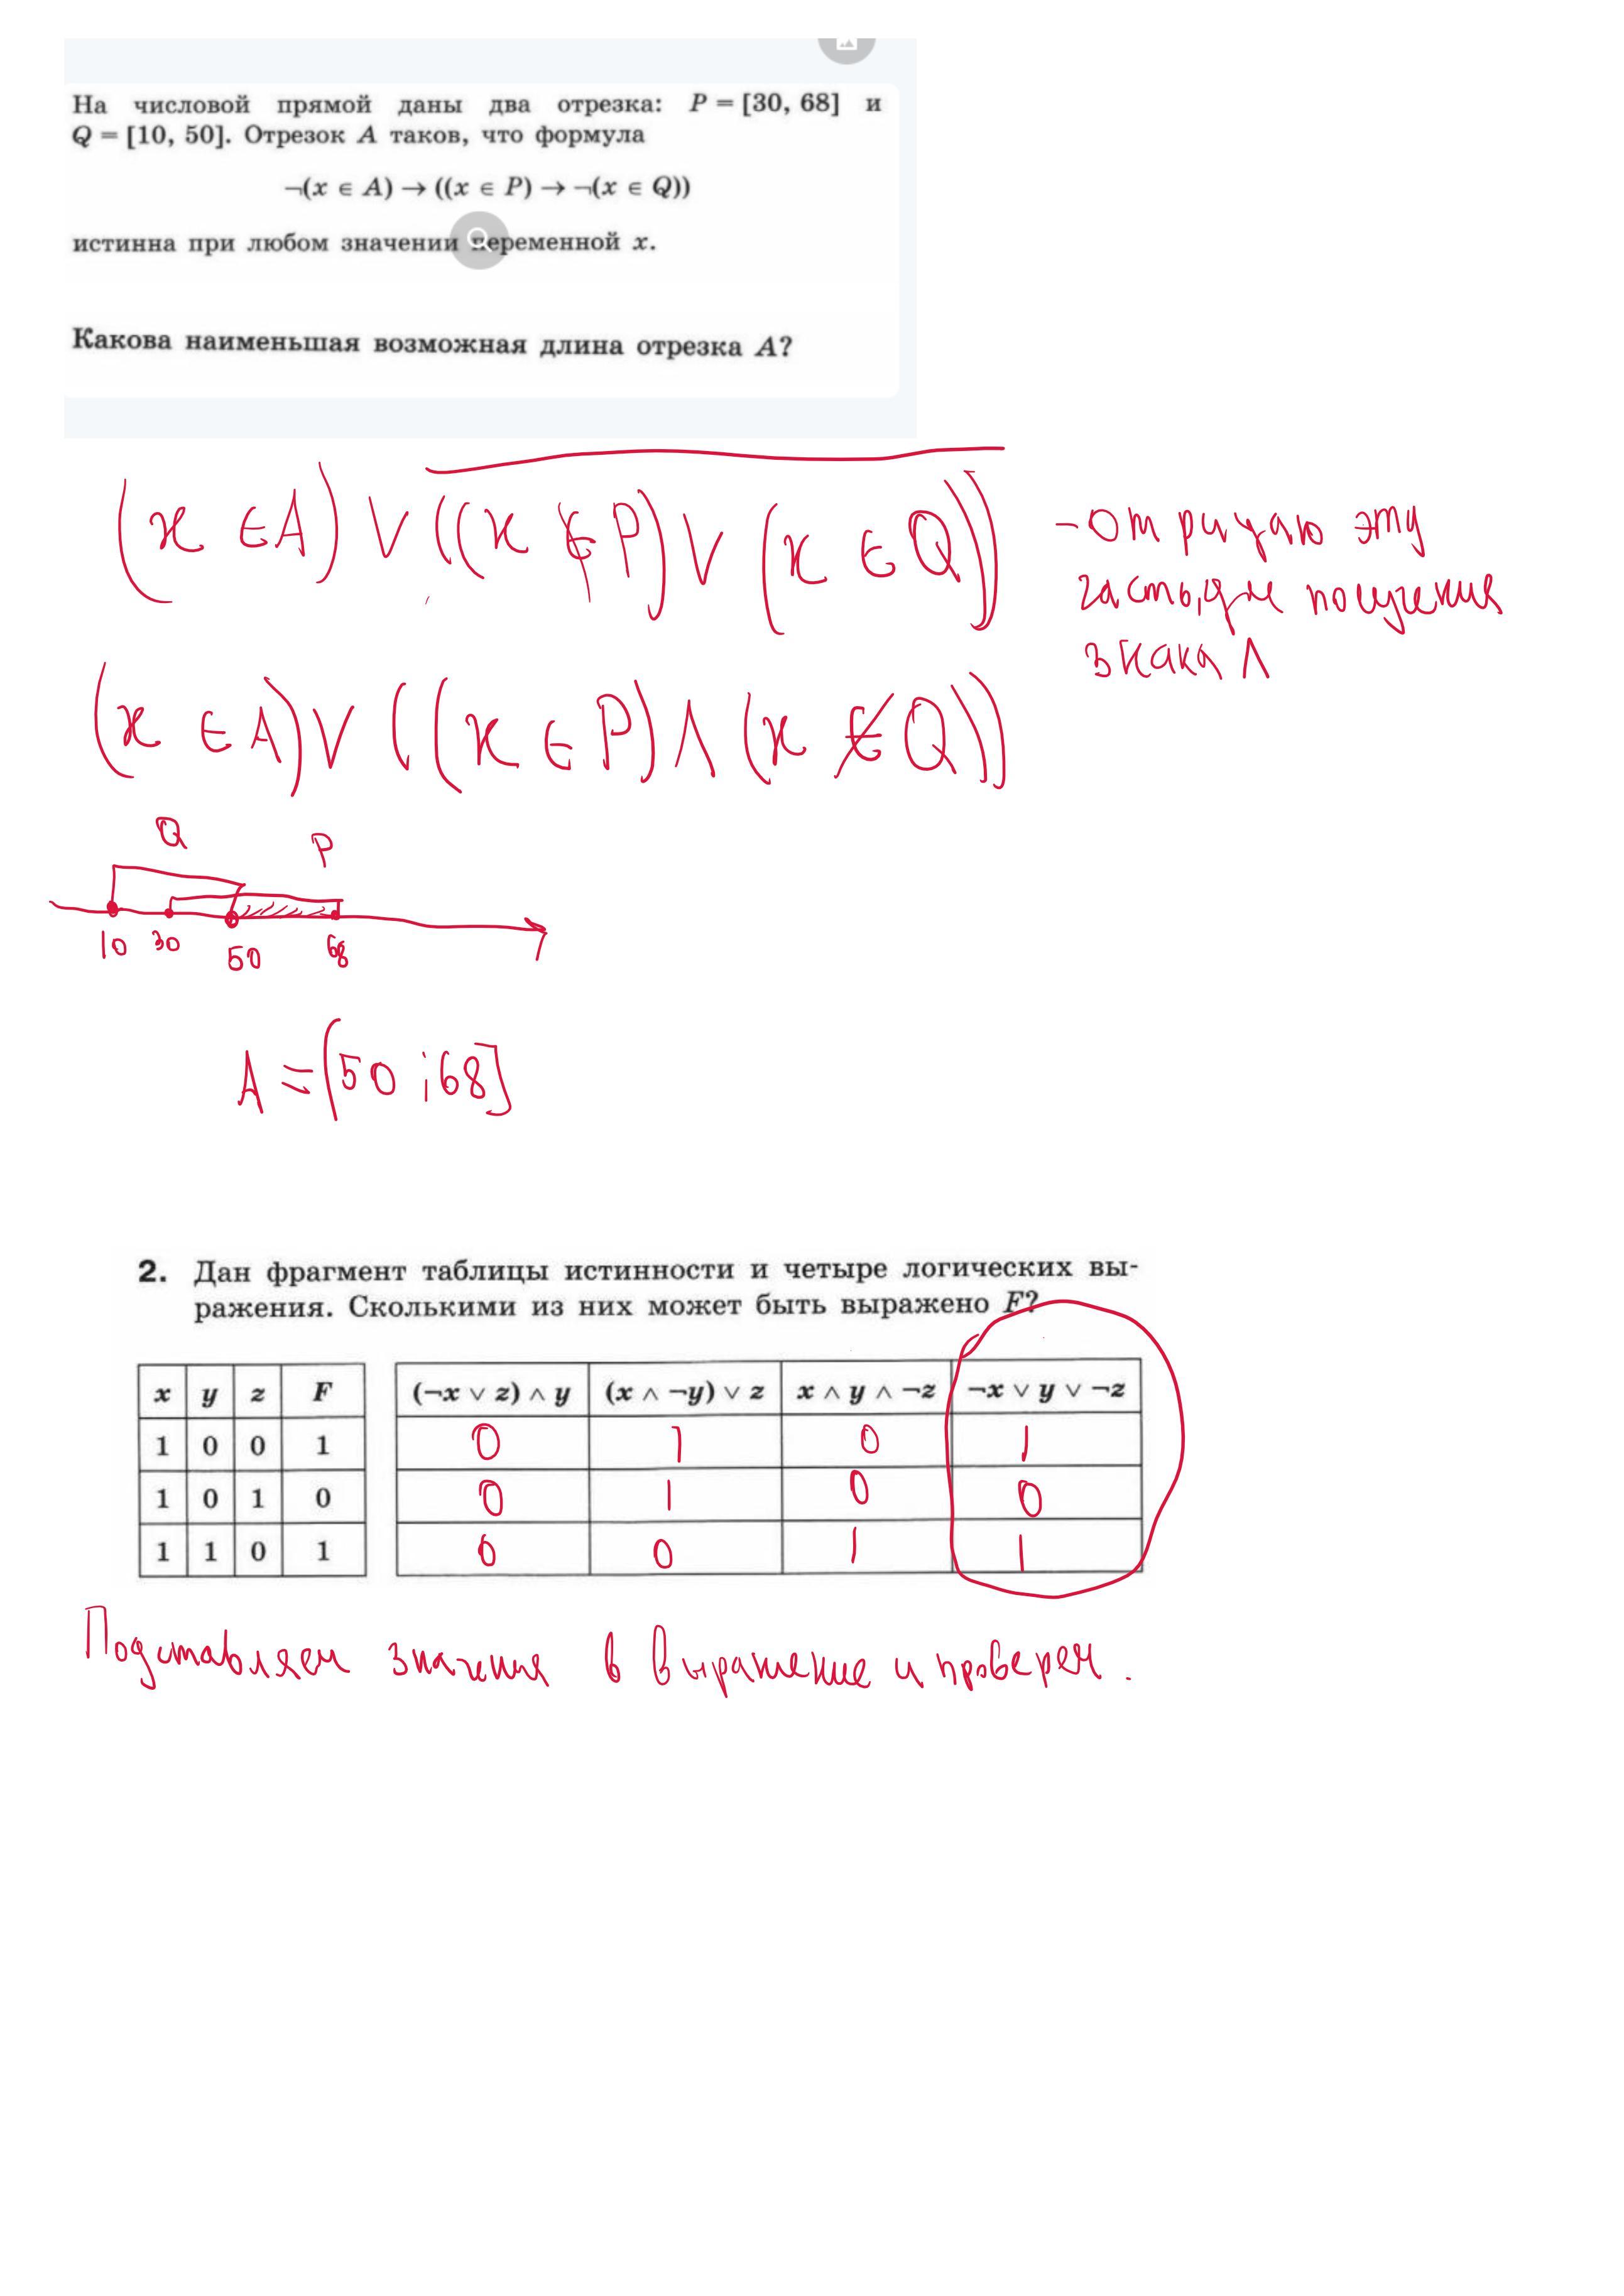 На числовой прямой даны два отрезка: P = [30, 68] и
Q = [10, 50]. Отрезок A таков, что формула
¬(x ∈ A) → ((x ∈ P) → ¬(x ∈ Q))
истинна при любом значении переменной x.
Какова наименьшая возможная длина отрезка A?
(x ∈ A) ∨ ((x ∉ P) ∨ (x ∈ Q))
- отрицаю эту
часть, для получения
знака ∧
(x ∈ A) ∨ ((x ∈ P) ∧ (x ∉ Q))
Q P
10 30 50 68
A = (50 ; 68]
2. Дан фрагмент таблицы истинности и четыре логических вы-
ражения. Сколькими из них может быть выражено F?
x y z F (¬x ∨ z) ∧ y (x ∧ ¬y) ∨ z x ∧ y ∧ ¬z ¬x ∨ y ∨ ¬z
1 0 0 1 0 1 0 1
1 0 1 0 0 1 0 0
1 1 0 1 0 0 1 1
Подставляем значения в выражение и проверям.